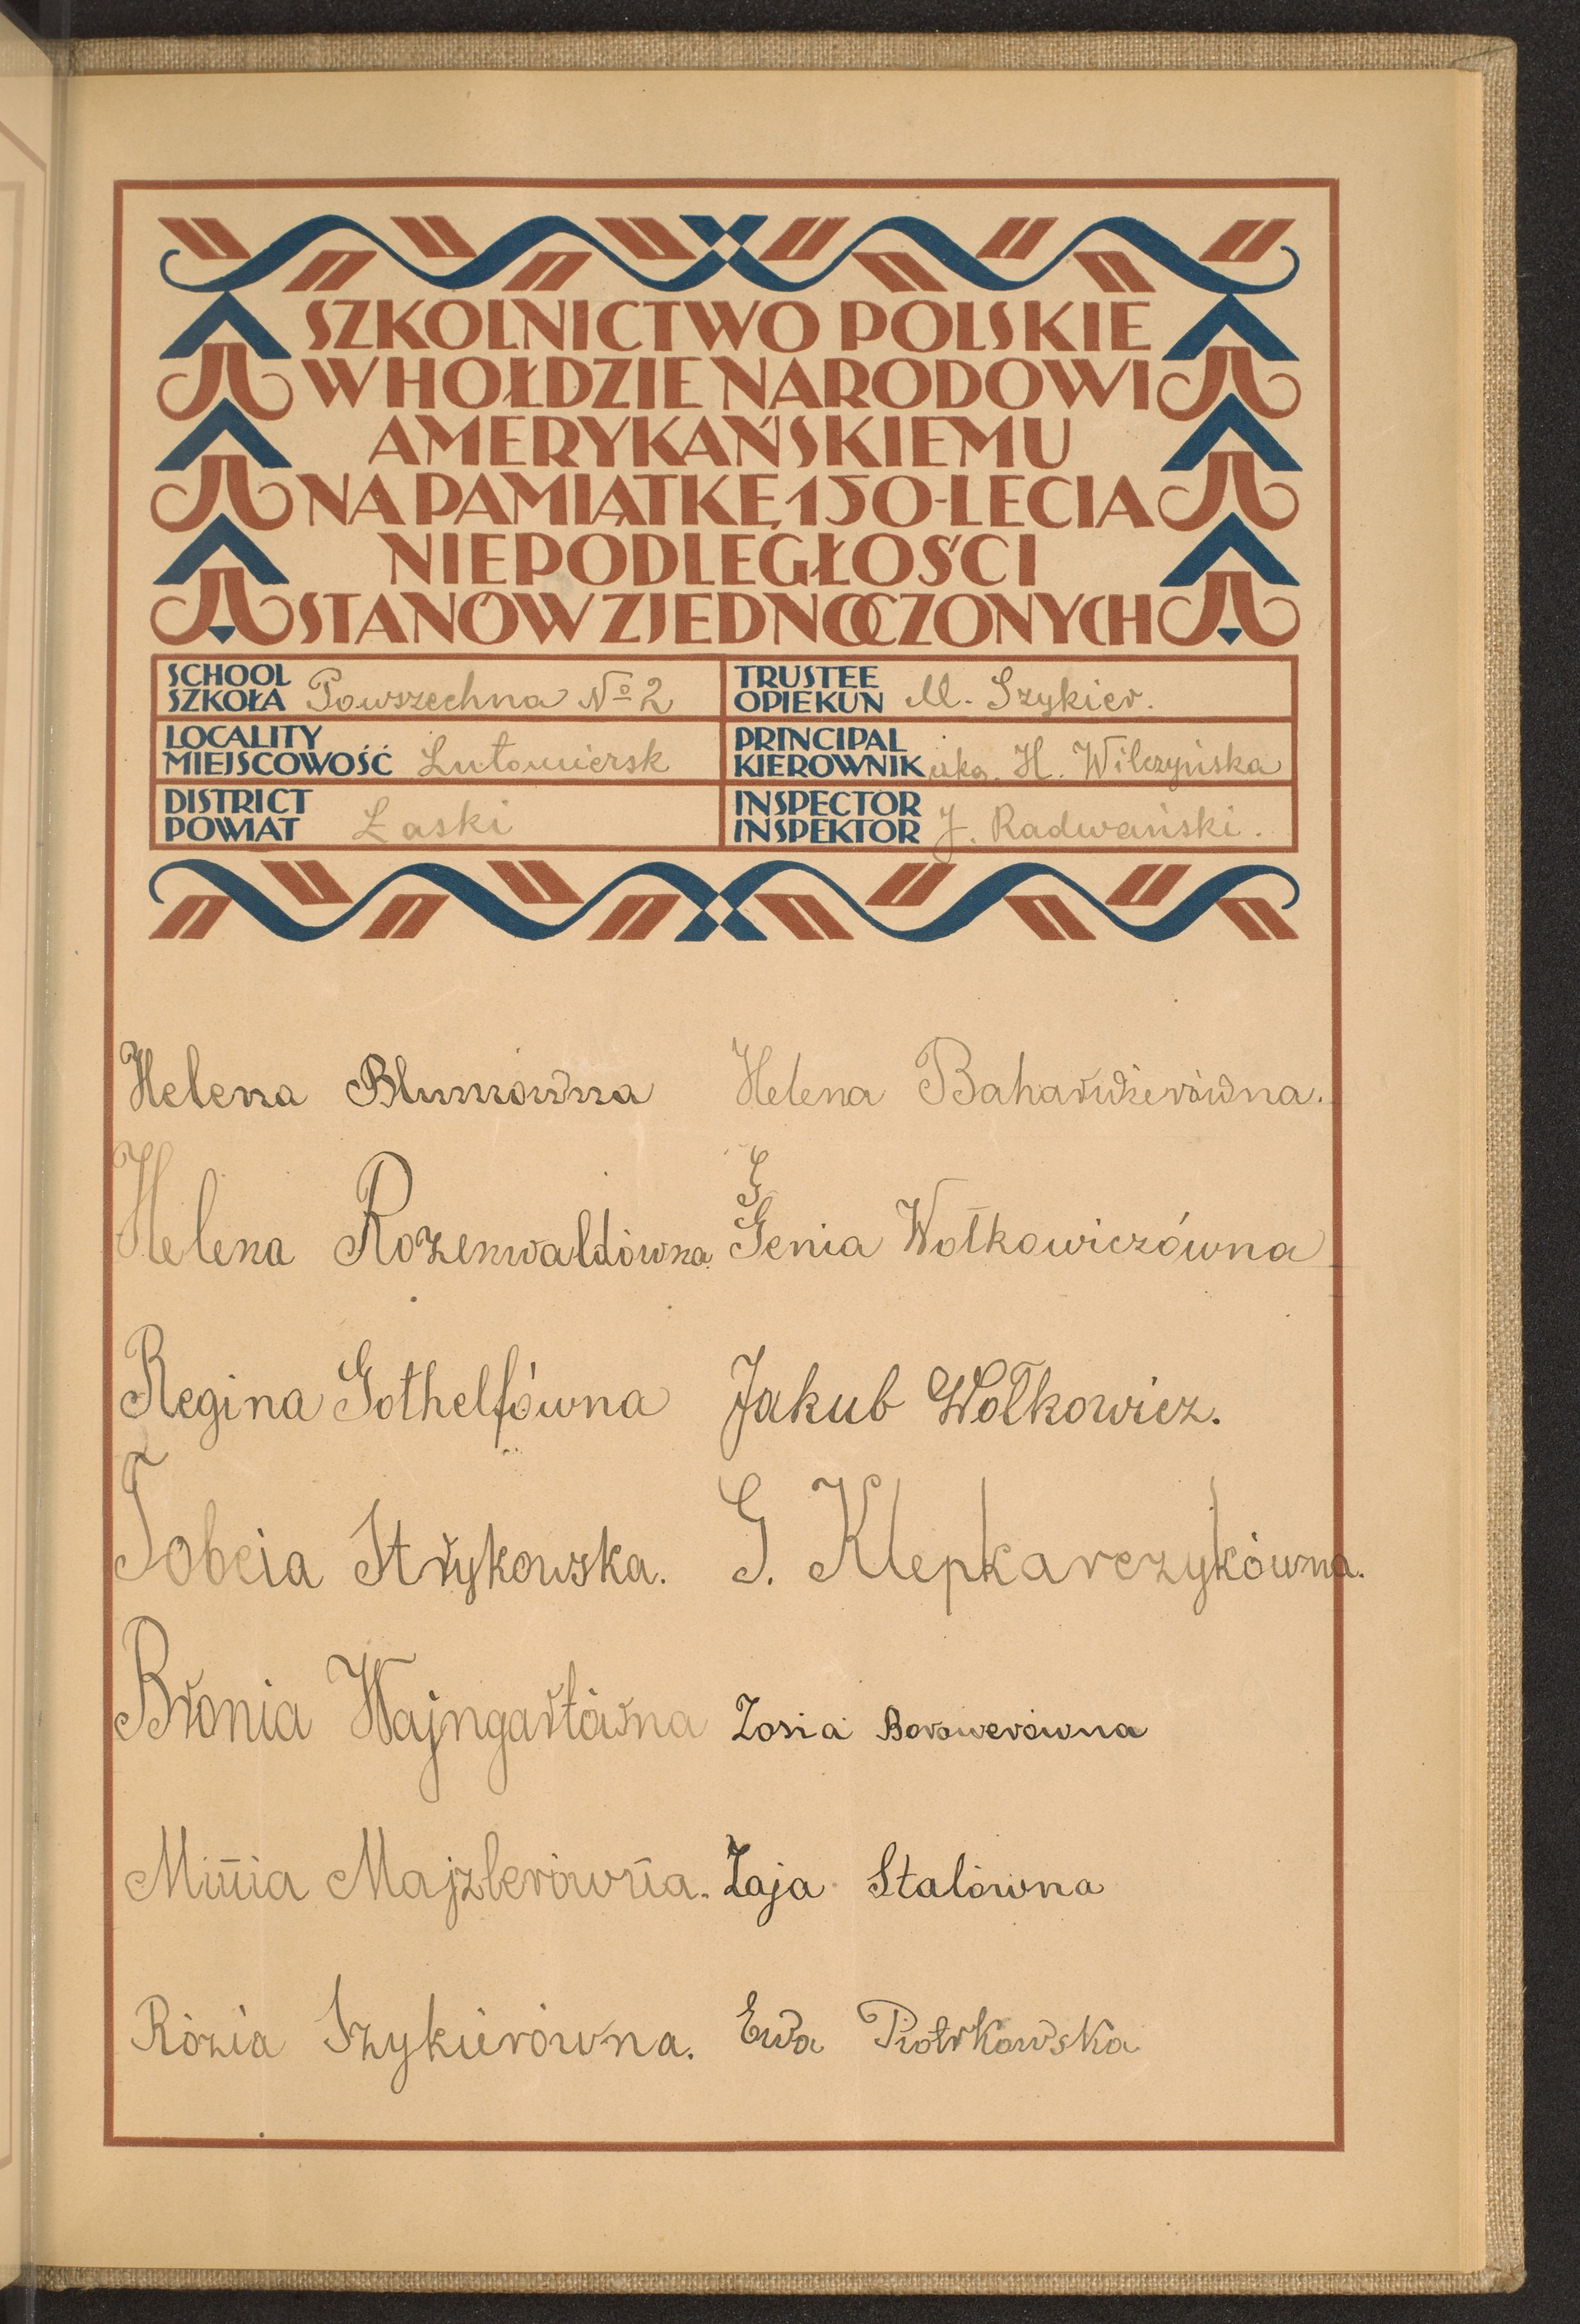 SZKOLNICTWO POLSKIE
W HOŁDZIE NARODOWI
AMERYKAŃSKIEMU
NA PAMIĄTKĘ 150-LECIA
NIEPODLEGŁOŚCI
STANÓW ZJEDNOCZONYCH
SCHOOL
SZKOŁA Powszechna № 2
TRUSTEE
OPIEKUN M. Szykier.
LOCALITY
MIEJSCOWOŚĆ Lutomiersk
PRINCIPAL
KIEROWNIK H. Wilczyńska
DISTRICT
POWIAT Łaski
INSPECTOR
INSPEKTOR J. Radwański.
Helena Blumówna Helena Baharwierówna.
G
Helena Rozenwaldówna Genia Wołkowiczówna
Regina Gothelfówna Jakub Wołkowicz.
Tobcia Strykowska. G. Klepkarczykówna.
Bronia Wajngartówna Zosia Borowerówna
Minia Majzlerówna. Zaja Stalówna
Rózia Szykierówna. Ewa Piotrkowska